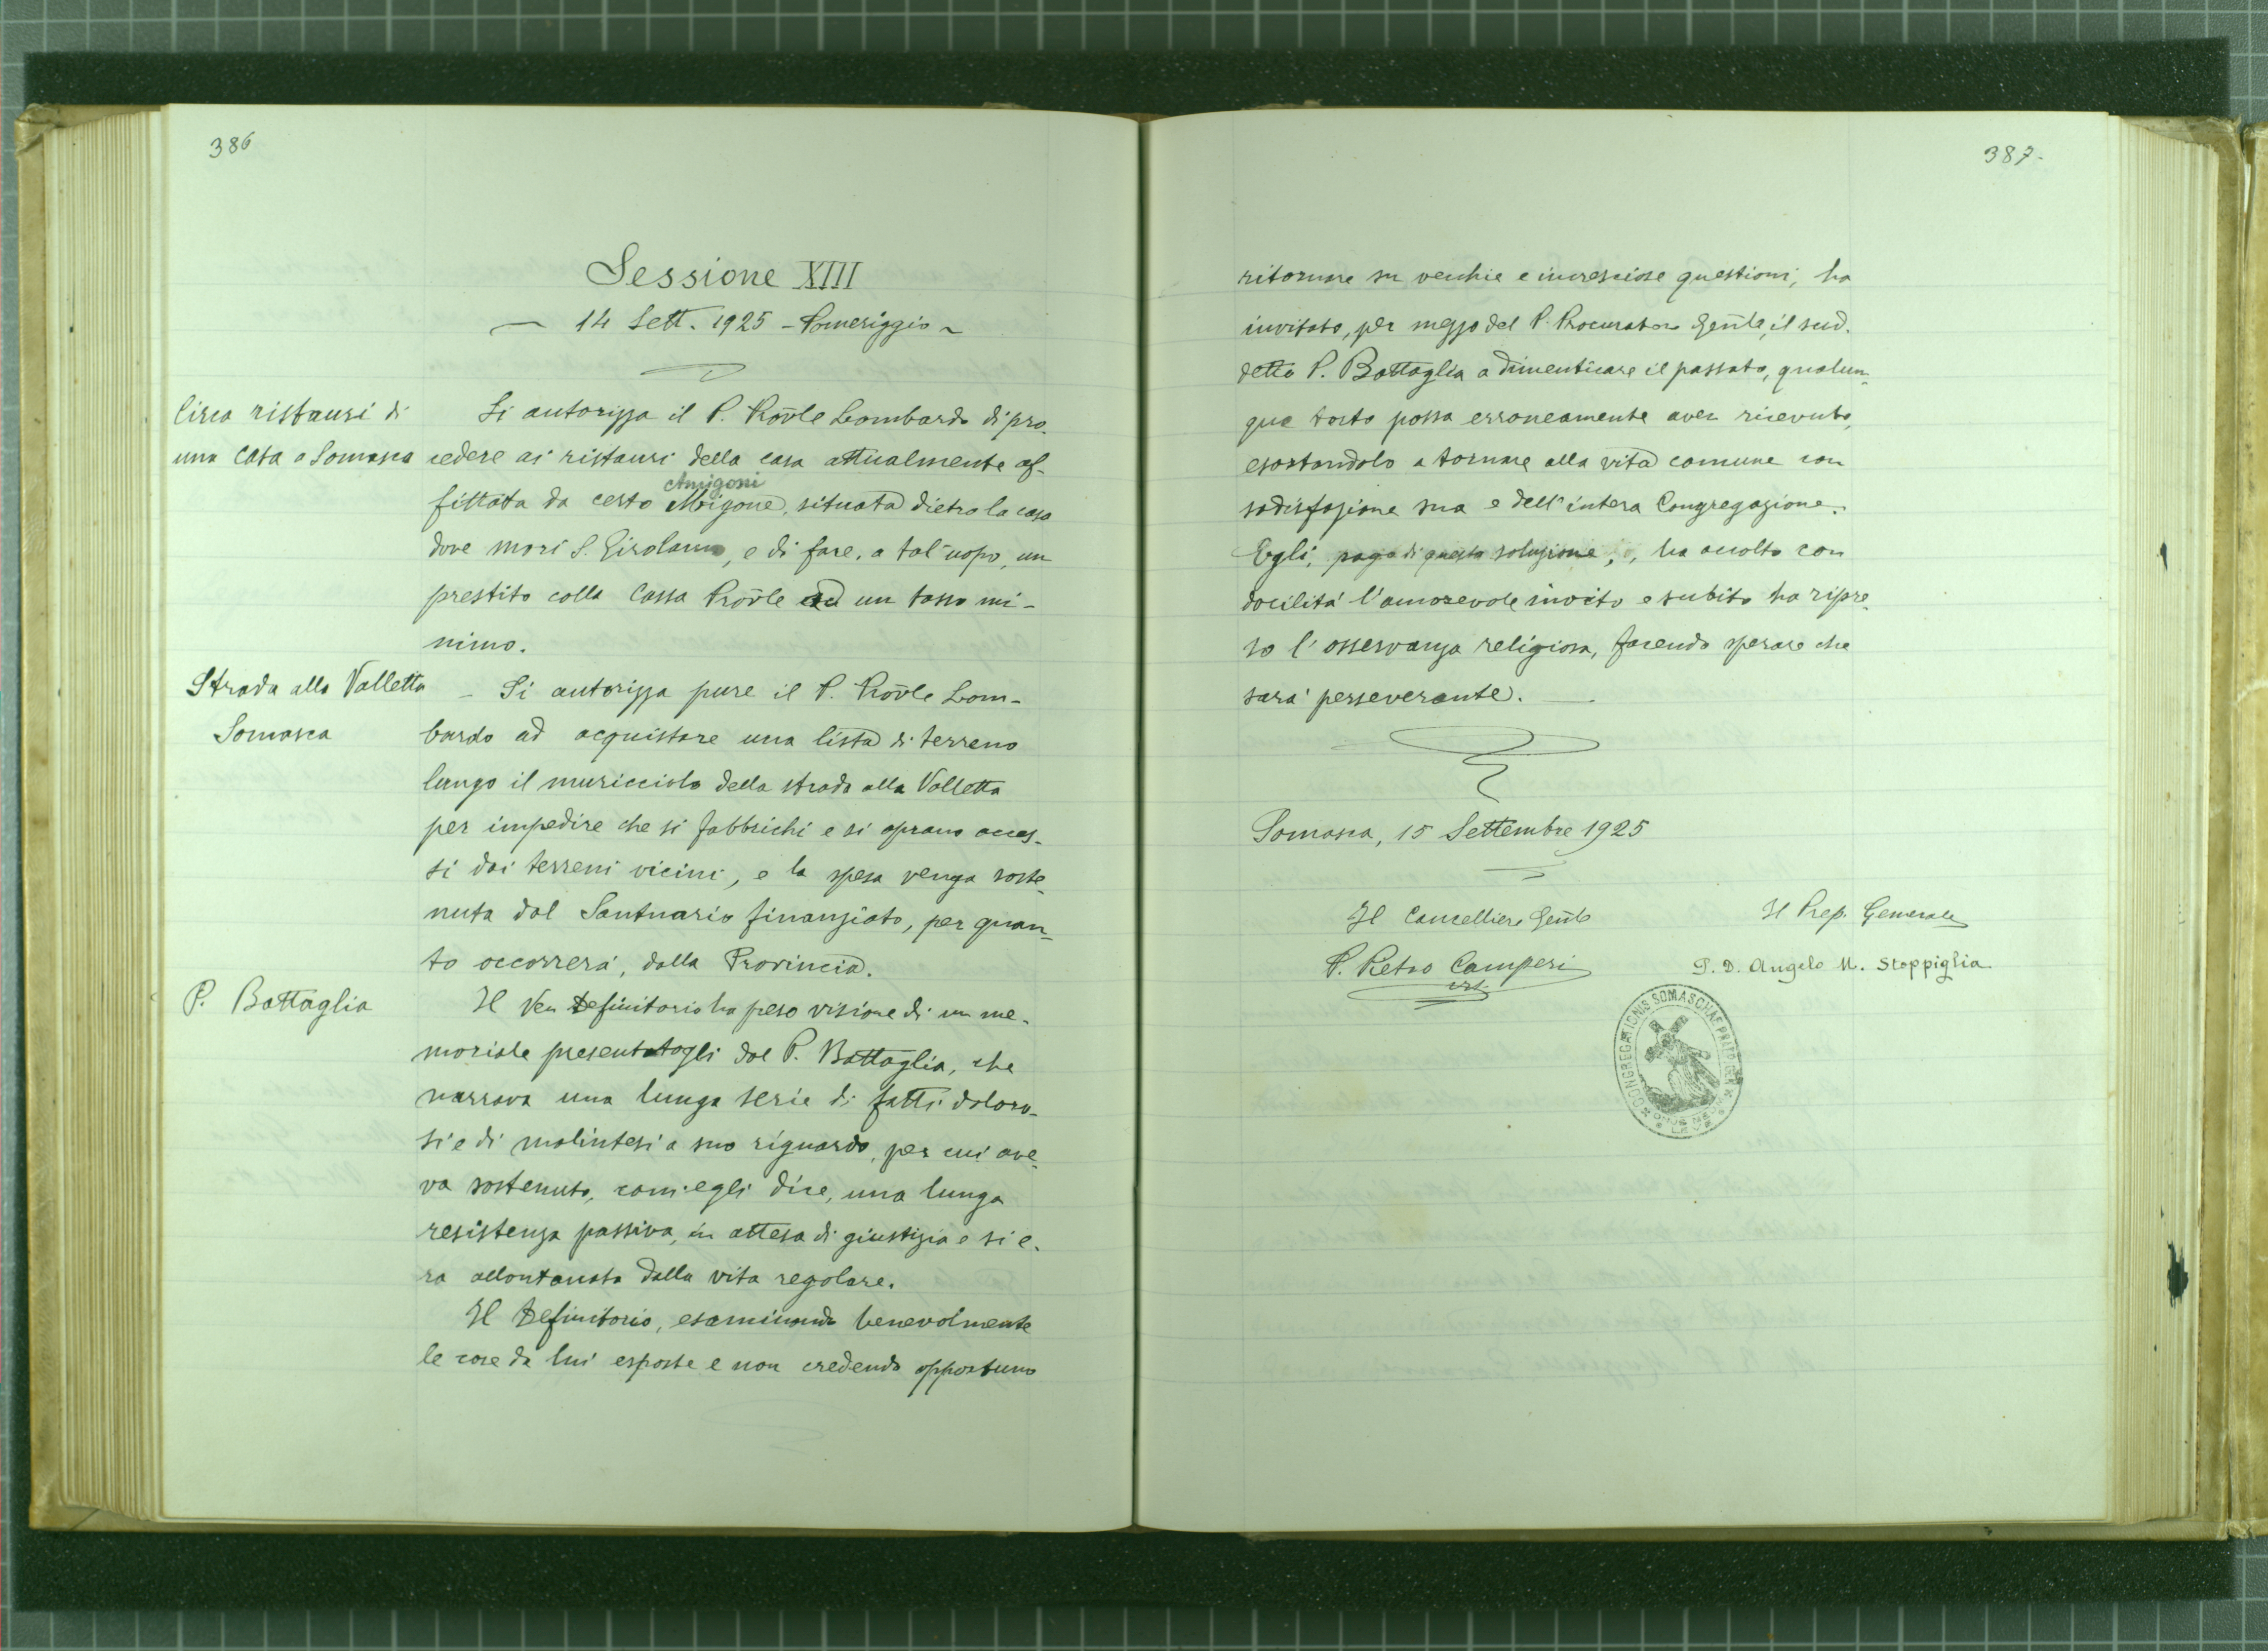 386
Sessione XIII
— 14 Sett. 1925 - Pomeriggio ~
Circa ristauri di
una casa a Somasca
Si autorizza il P. Prov̄le Lombardo di pro-
cedere ai ristauri della casa attualmente af-
Amigoni
fittata da certo Migone, situata dietro la casa
dove morì S. Girolamo, e di fare, a tal'uopo, un
prestito colla Cassa Prov̄le ad un tasso mi-
nimo.
Strada alla Valletta
Somasca
- Si autorizza pure il P. Prov̄le Lom-
bardo ad acquistare una lista di terreno
lungo il muricciolo della strada alla Valletta
per impedire che si fabbrichi e si aprano acces-
si dai terreni vicini, e la spesa venga soste-
nuta dal Santuario finanziato, per quan-
to occorrerà, dalla Provincia.
P. Battaglia
Il Ven Definitorio ha preso visione di un me-
moriale presentatogli dal P. Battaglia, che
narrava una lunga serie di fatti doloro-
si e di malintesi a suo riguardo, per cui ave-
va sostenuto, com'egli dice, una lunga
resistenza passiva, in attesa di giustizia e si e-
ra allontanato dalla vita regolare.
Il Definitorio, esaminando benevolmente
le cose da lui esposte e non credendo opportuno
387-
ritornare su vecchie e incresciose questioni, ha
invitato, per mezzo del P. Procuratore Gen̄le, il sud-
detto P. Battaglia a dimenticare il passato, qualun-
que torto possa erroneamente aver ricevuto,
esortandolo a tornare alla vita comune con
sodisfazione sua e dell'intera Congregazione.
Egli, pago di questa soluzione, ha accolto con
docilità l'amorevole invito e subito ha ripre-
so l'osservanza religiosa, facendo sperare che
sarà perseverante. —.
Somasca, 15 Settembre 1925
Il Cancelliere Gen̄le
P. Pietro Camperi
crs.
Il Prep. Generale
P. D. Angelo M. Stoppiglia
CONGREGATIONIS SOMASCHAE PRAEP. GEN.
ONUS MEUM LEVE